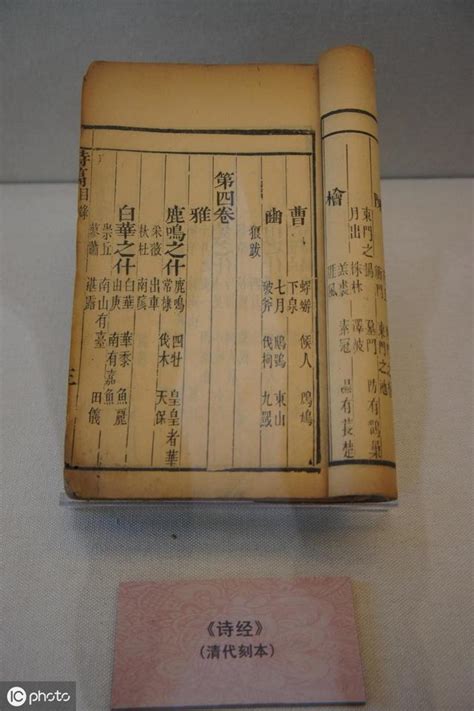 東門之楊
月出 株林 澤陂
檜
羔裘 素冠 隰有萇楚
匪風
曹
蜉蝣 候人 鳲鳩
下泉
豳
七月 鴟鴞 東山
破斧 伐柯 九罭
狼跋
第四卷
雅
鹿鳴之什
鹿鳴 四牡 皇皇者華
常棣 伐木 天保
采薇 出車
杕杜 南陔
白華之什
白華 華黍 魚麗
由庚 南有嘉魚
崇丘 南山有臺 由儀
蓼蕭 湛露
三
《诗经》
(清代刻本)
IC photo